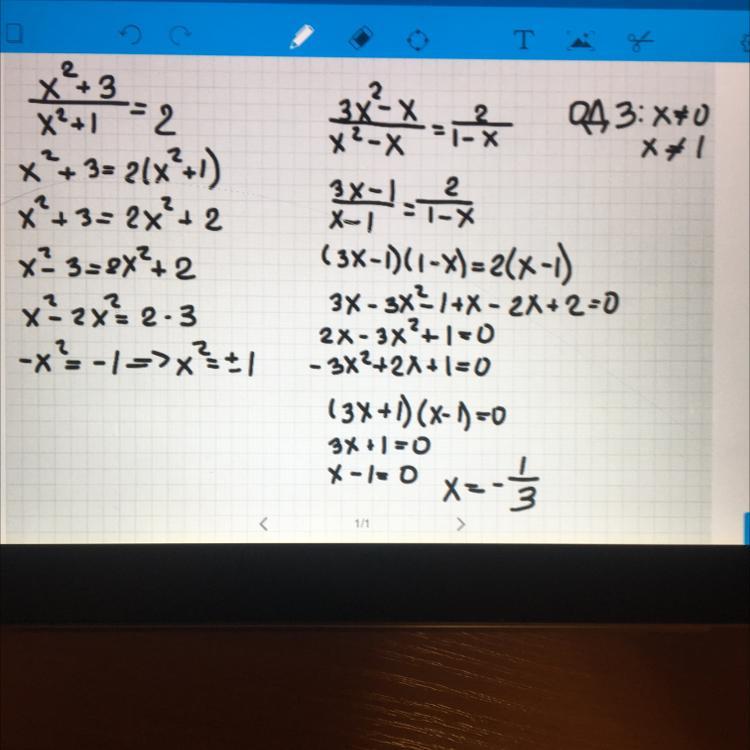 T
x²+3/x²+1 = 2
x²+3=2(x²+1)
x²+3=2x²+2
x²-3=2x²+2
x²-2x²=2·3
-x²=-1=>x²=±1
3x²-x/x²-x = 2/1-x
ОДЗ: x≠0
x≠1
3x-1/x-1 = 2/1-x
(3x-1)(1-x)=2(x-1)
3x-3x²-1+x-2x+2=0
2x-3x²+1=0
-3x²+2x+1=0
(3x+1)(x-1)=0
3x+1=0
x-1=0
x=-1/3
1/1